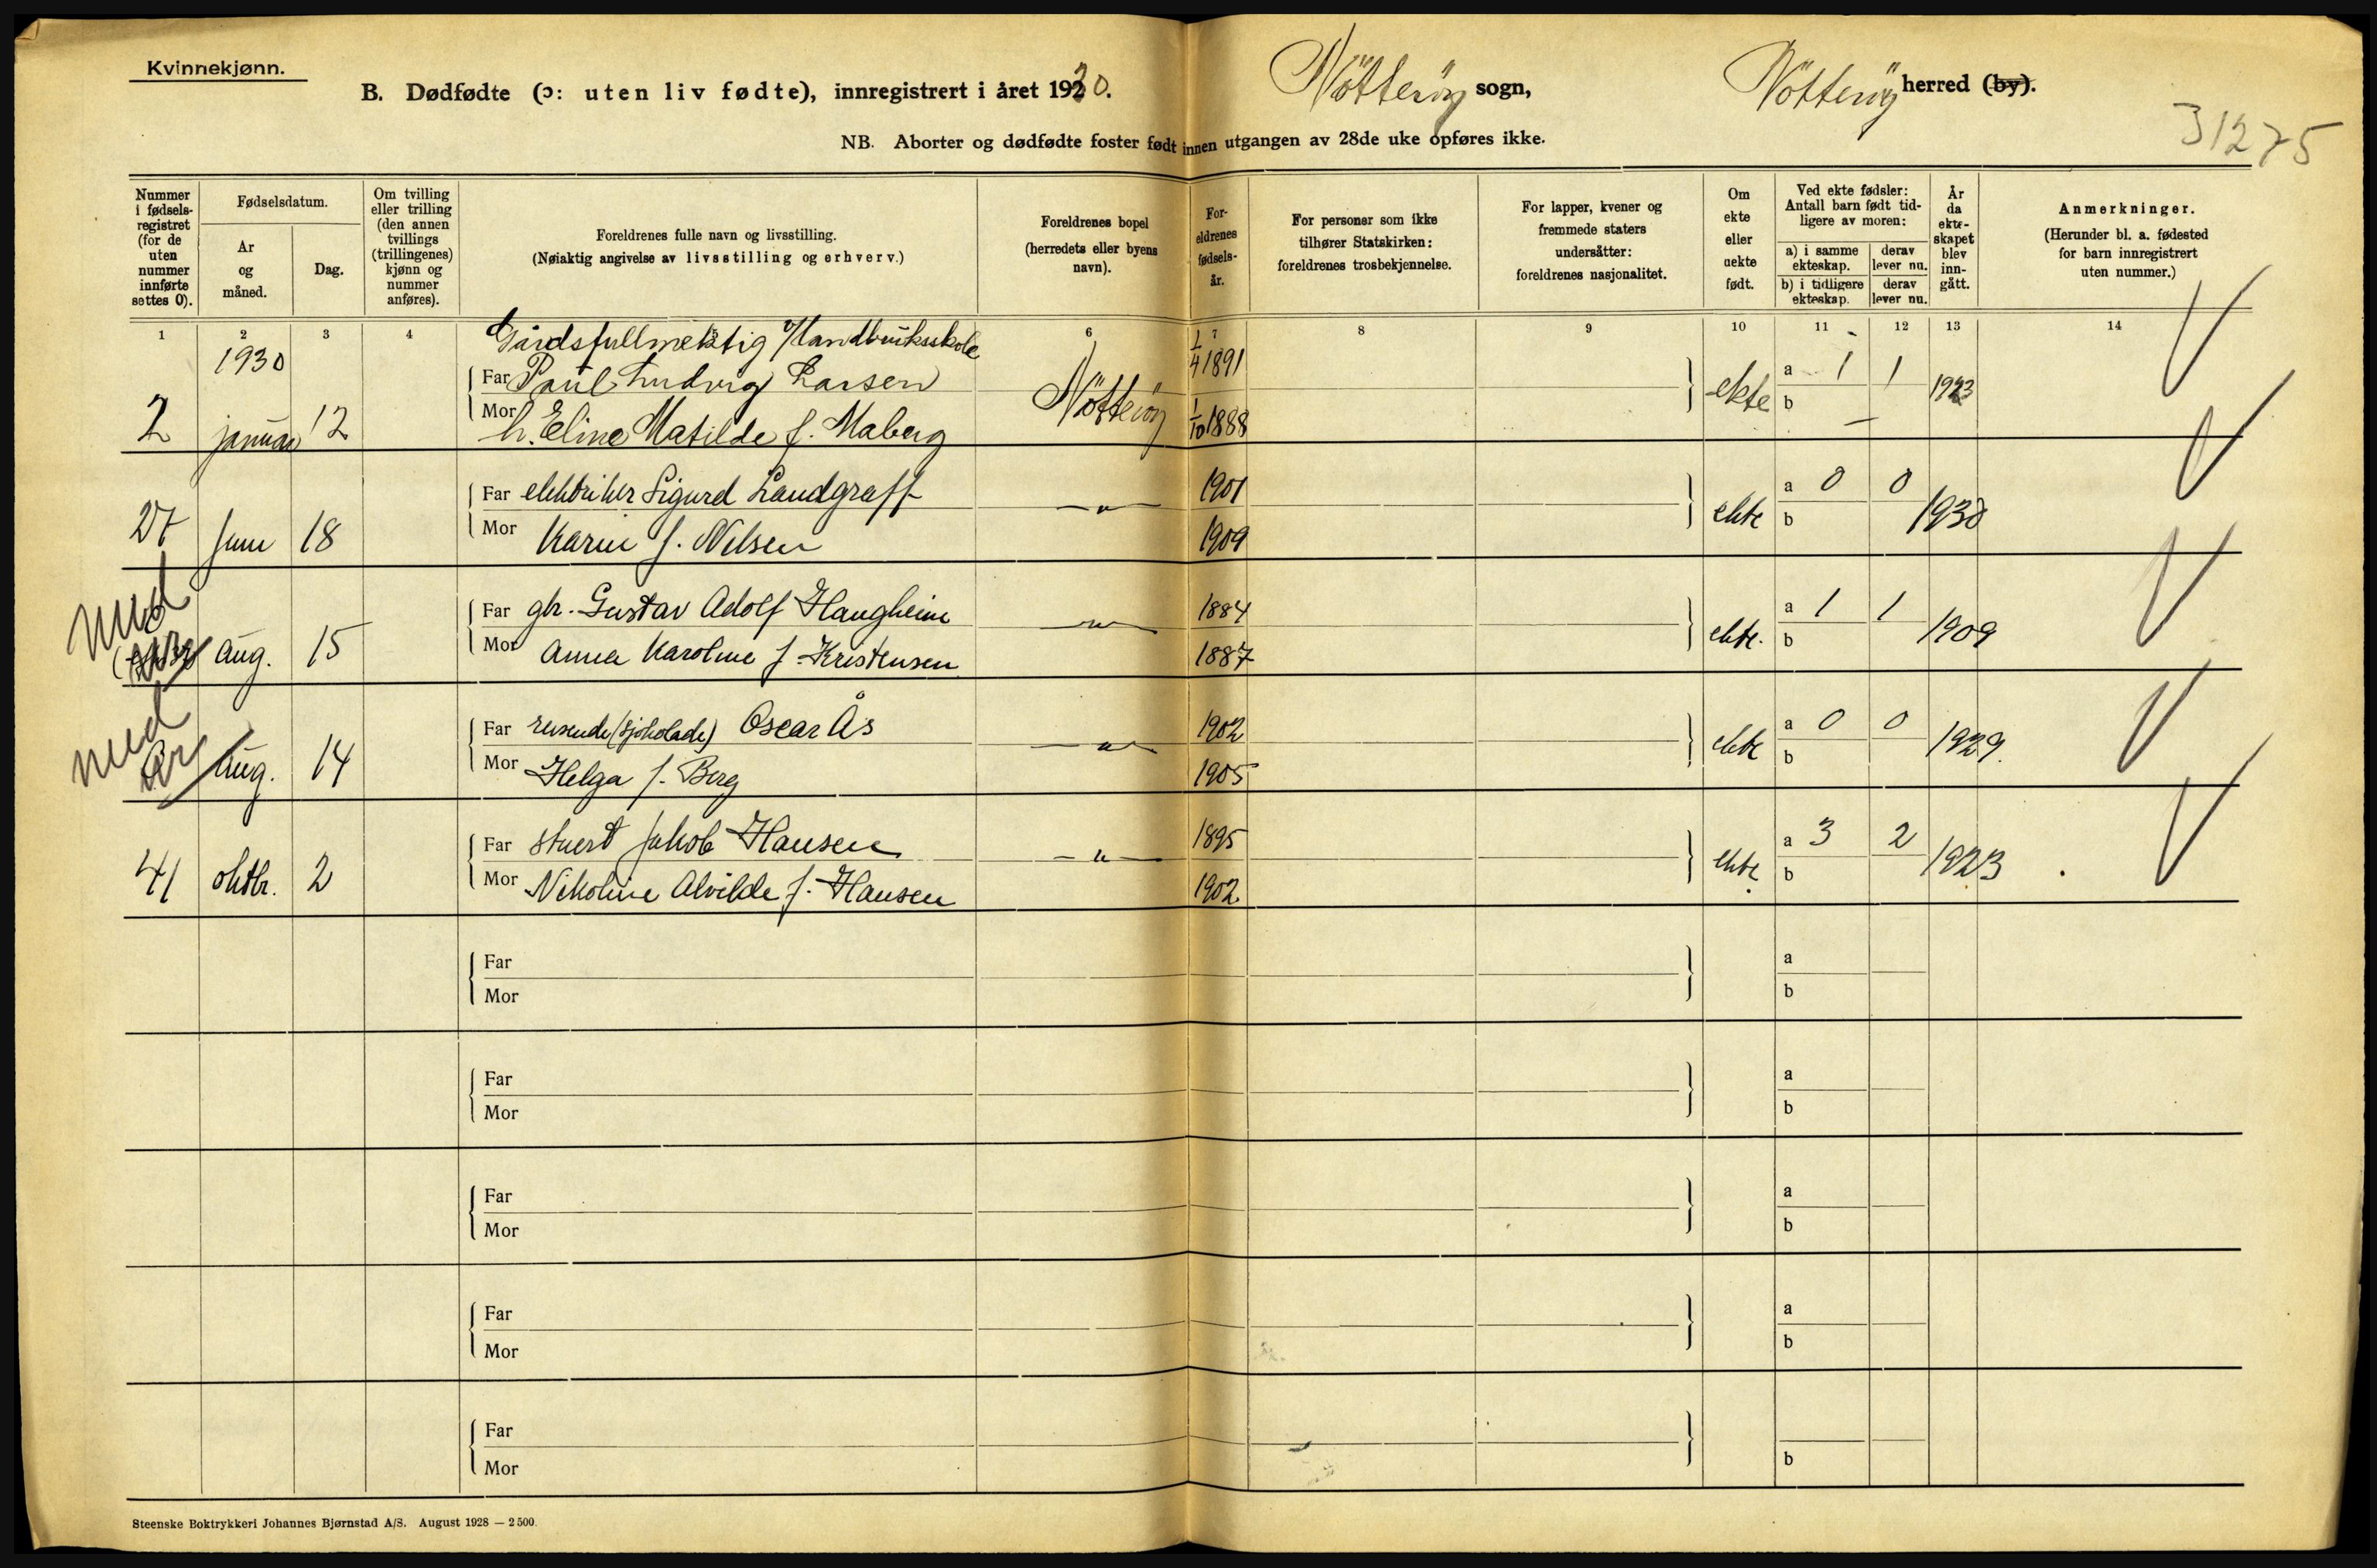 Kvinnekjønn.
B. Dødfødte (ɔ: uten liv fødte), innregistrert i året 1930. Nötteröy sogn, Nötteröy herred (by).
31275
NB. Aborter og dødfødte foster født innen utgangen av 28de uke opføres ikke.
Nummer i fødselsregistret (for de uten nummer innførte settes 0).
Fødselsdatum.
År og måned.
Dag.
Om tvilling eller trilling (den annen tvillings (trillingenes) kjønn og nummer anføres).
Foreldrenes fulle navn og livsstilling.
(Nøiaktig angivelse av livsstilling og erhverv.)
Foreldrenes bopel (herredets eller byens navn).
Foreldrenes fødselsår.
For personer som ikke tilhører Statskirken: foreldrenes trosbekjennelse.
For lapper, kvener og fremmede staters undersåtter: foreldrenes nasjonalitet.
Om ekte eller uekte født.
Ved ekte fødsler: Antall barn født tidligere av moren:
a) i samme ekteskap. derav lever nu.
b) i tidligere ekteskap. derav lever nu.
År da ekteskapet blev inngått.
Anmerkninger.
(Herunder bl. a. fødested for barn innregistrert uten nummer.)
1 2 3 4 6 7 8 9 10 11 12 13 14
1930 Gårdsfullmektig v/landbruksskole
Far Paul Ludvig Larsen 1/4 1891 a 1 1
2 januar 12 Mor h. Eline Matilde f. Maberg Nötteröy 1/10 1888 ekte b — 1923
Far elektriker Sigurd Landgraff 1901 a 0 0
27 Juni 18 Mor Karin f. Nilsen — " — 1909 ekte b 1930
med
Far gbr. Gustav Adolf Haugheim 1884 a 1 1
Aug. 15 Mor Anna Karoline f. Kristensen — " — 1887 ekte. b 1909
med
Far reisende (sjokolade) Oscar Ås 1902 a 0 0
Aug. 14 Mor Helga f. Berg — " — 1905 ekte b 1929.
Far stuert Jakob Hansen 1895 a 3 2
41 oktbr. 2 Mor Nikoline Alvilde f. Hansen — " — 1902 ekte b 1923
Far a
Mor b
Far a
Mor b
Far a
Mor b
Far a
Mor b
Far
Mor b
Steenske Boktrykkeri Johannes Bjørnstad A/S. August 1928 — 2500.